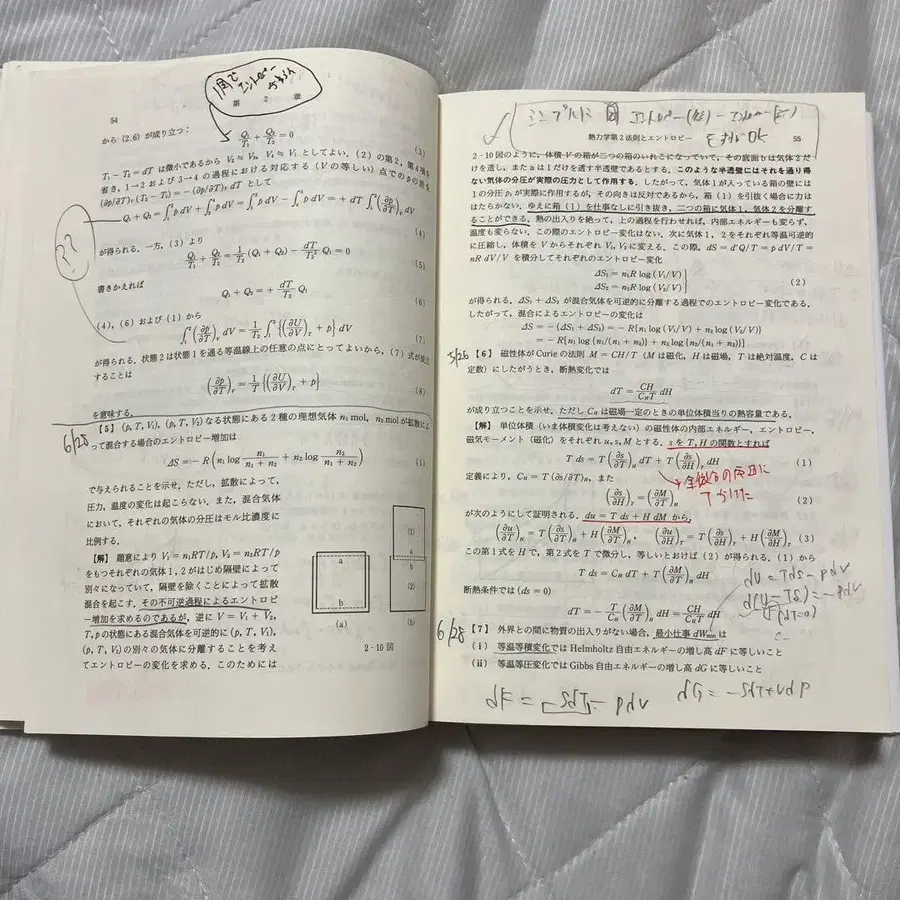 54
第 2 章
から (2.6) が成り立つ:
Q₁/T₁ + Q₂/T₂ = 0 (3)
T₁ − T₂ = dT は微小であるから V₃≒V₂, V₄≒V₁ としてよい. (2) の第2, 第4項を
省き, 1→2 および 3→4 の過程における対応する (V の等しい) 点での p の差を
(∂p/∂T)ᵥ(T₂ − T₁) = −(∂p/∂T)ᵥ dT として
(4)
が得られる. 一方, (3) より
Q₁/T₁ + Q₂/T₂ = 1/T₂ (Q₁ + Q₂) − dT/T₂² Q₁ = 0 (5)
書きかえれば
Q₁ + Q₂ = + dT/T₂ Q₁ (6)
(4), (6) および (1) から
∫₁²(∂p/∂T)ᵥ dV = 1/T₂ ∫₁²{(∂U/∂V)_T + p} dV (7)
が得られる. 状態2は状態1を通る等温線上の任意の点にとってよいから, (7) 式が成立
することは
(∂p/∂T)ᵥ = 1/T {(∂U/∂V)_T + p} (8)
を意味する.
6/28
[5] (p, T, V₁), (p, T, V₂) なる状態にある2種の理想気体 n₁ mol, n₂ mol が拡散によ
って混合する場合のエントロピー増加は
ΔS = −R(n₁ log n₁/(n₁ + n₂) + n₂ log n₂/(n₁ + n₂)) (1)
で与えられることを示せ. ただし, 拡散によって,
圧力, 温度の変化は起こらない. また, 混合気体
において, それぞれの気体の分圧はモル比濃度に
比例する.
[解] 題意により V₁ = n₁RT/p, V₂ = n₂RT/p
をもつそれぞれの気体1, 2がはじめ隔壁により
別々になっていて, 隔壁を除くことによって拡散
混合を起こす. その不可逆過程によるエントロピ
ー増加を求めるのであるが, 逆に V = V₁ + V₂,
T, p の状態にある混合気体を可逆的に (p, T, V₁),
(p, T, V₂) の別々の気体に分離することを考え
てエントロピーの変化を求める. このためには
a
b
(a)
(1)
a
(2)
b
(b)
2-10 図
熱力学第2法則とエントロピー 55
2-10 図のように, 体積 V の箱が二つの箱のいれこになっていて, その底面 b は気体2だ
けを透し, また a は1だけを透す半透壁であるとする. このような半透壁にはそれを通り得
ない気体の分圧が実際の圧力として作用する. したがって, 気体1が入っている箱の壁には
1の分圧 p₁ が実際に作用するが, その向きは反対であるから, 箱 (1) を引抜く場合に力は
はたらかない. ゆえに箱 (1) を仕事なしに引き抜き, 二つの箱に気体1, 気体2を分離す
ることができる. 熱の出入りを絶って, 上の過程を行わせれば, 内部エネルギーも変らず,
温度も変らない. この際のエントロピー変化はない. 次に気体1, 2をそれぞれ等温可逆的
に圧縮し, 体積を V からそれぞれ V₁, V₂ に変える. この際, dS = d′Q/T = p dV/T =
nR dV/V を積分してそれぞれのエントロピー変化
ΔS₁ = n₁R log (V₁/V)
ΔS₂ = n₂R log (V₂/V) (2)
が得られる. ΔS₁ + ΔS₂ が混合気体を可逆的に分離する過程でのエントロピー変化である.
したがって, 混合によるエントロピーの変化は
ΔS = −(ΔS₁ + ΔS₂) = −R{n₁ log (V₁/V) + n₂ log (V₂/V)}
= −R{n₁ log [n₁/(n₁ + n₂)] + n₂ log [n₂/(n₁ + n₂)]}
[6] 磁性体が Curie の法則 M = CH/T (M は磁化, H は磁場, T は絶対温度, C は
定数) にしたがうとき, 断熱変化では
dT = CH/(C_H T) dH
が成り立つことを示せ. ただし C_H は磁場一定のときの単位体積当りの熱容量である.
[解] 単位体積 (いま体積変化は考えない) の磁性体の内部エネルギー, エントロピー,
磁気モーメント (磁化) をそれぞれ u, s, M とする. s を T, H の関数とすれば
T ds = T(∂s/∂T)_H dT + T(∂s/∂H)_T dH (1)
定義により, C_H = T(∂s/∂T)_H, また
(∂s/∂H)_T = (∂M/∂T)_H (2)
が次のようにして証明される. du = T ds + H dM から,
(∂u/∂T)_H = T(∂s/∂T)_H + H(∂M/∂T)_H, (∂u/∂H)_T = T(∂s/∂H)_T + H(∂M/∂H)_T (3)
この第1式を H で, 第2式を T で微分し, 等しいとおけば (2) が得られる. (1) から
T ds = C_H dT + T(∂M/∂T)_H dH
断熱条件では (ds = 0)
dT = −T/C_H (∂M/∂T)_H dH = CH/(C_H T) dH
dU = Tds − pdV
6/28
[7] 外界との間に物質の出入りがない場合, 最小仕事 dWmin は
(i) 等温等積変化では Helmholtz 自由エネルギーの増し高 dF に等しいこと
(ii) 等温等圧変化では Gibbs 自由エネルギーの増し高 dG に等しいこと
dF = −SdT − pdV
dG = −SdT + Vdp